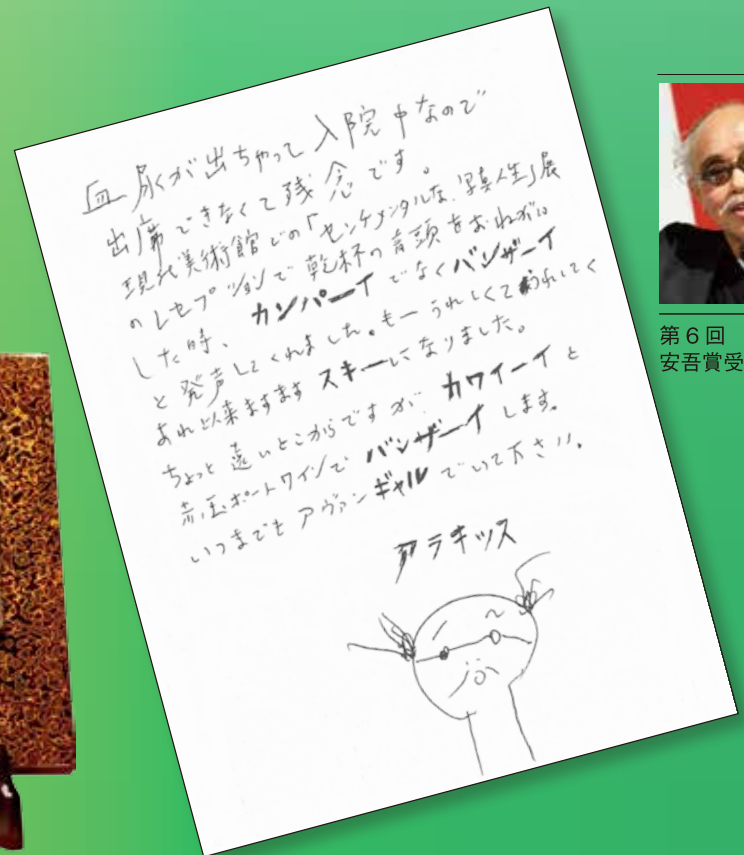 血尿が出ちゃって入院中なので
出席できなくて残念です。
現代美術館での「センチメンタルな写真人生」展
のレセプションで乾杯の音頭をおねがい
した時、カンパーイでなくバンザーイ
と発声してくれました。もーうれしくてうれしくて
あれ以来ますますスキーになりました。
ちょっと遠いとこからですが、カワイーイと
赤玉ポートワインでバンザーイします。
いつまでもアヴァンギャルでいて下さい。
アラキッス
第6回
安吾賞受